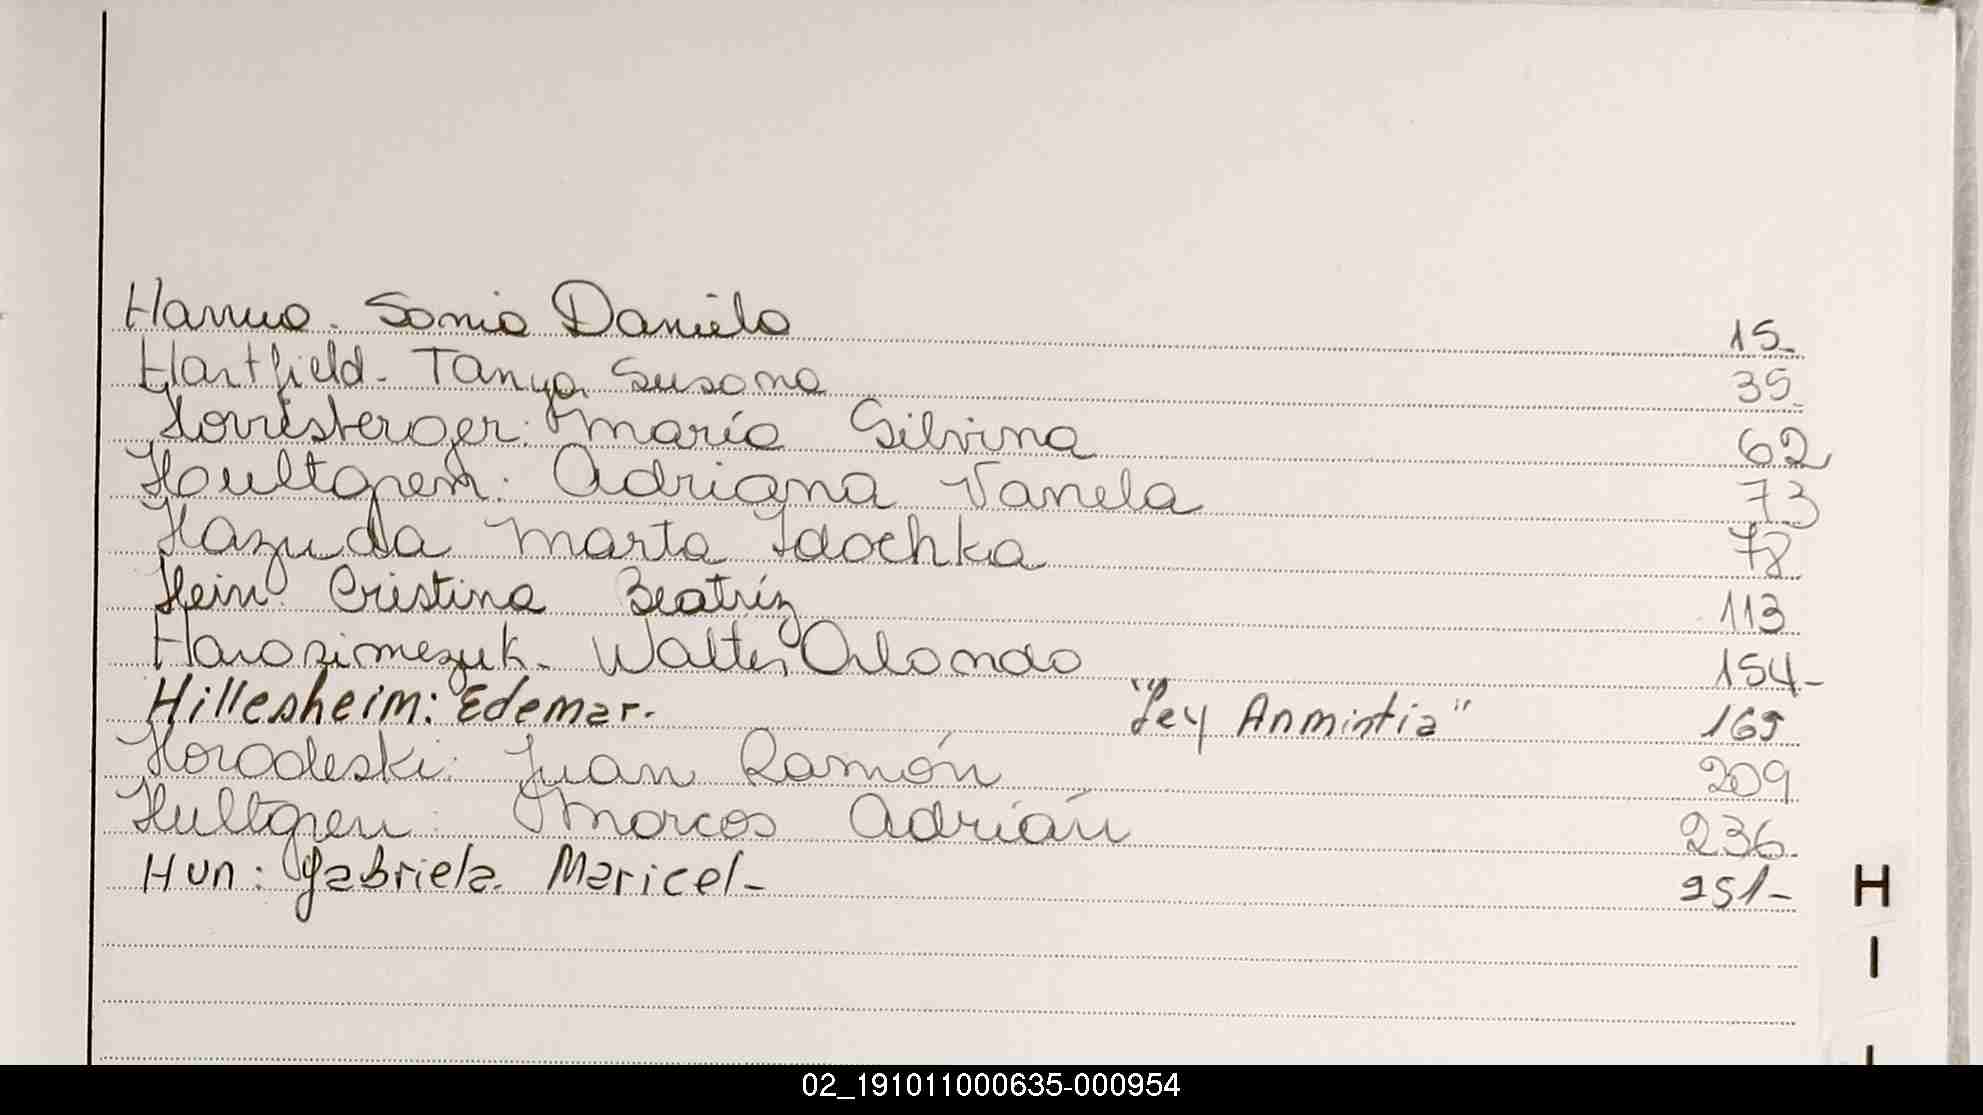 Hannuo. Sonia Daniela 15-
Hartfield. Tanya Susana 35
Horrisberger: María Silvina 62
Houltgren: Adriana Vanela 73
Hazuda Marta Idochka 78
Hein: Cristina Beatríz 113
Harosimezuk. Walter Orlando 154-
Hillesheim: Edemar. "Ley Anmistia" 165
Horodeski: Juan Ramón 209
Hultgren: Marcos Adrián 236
Hun: Gabriela Maricel- 251-
H
I
02_191011000635-000954